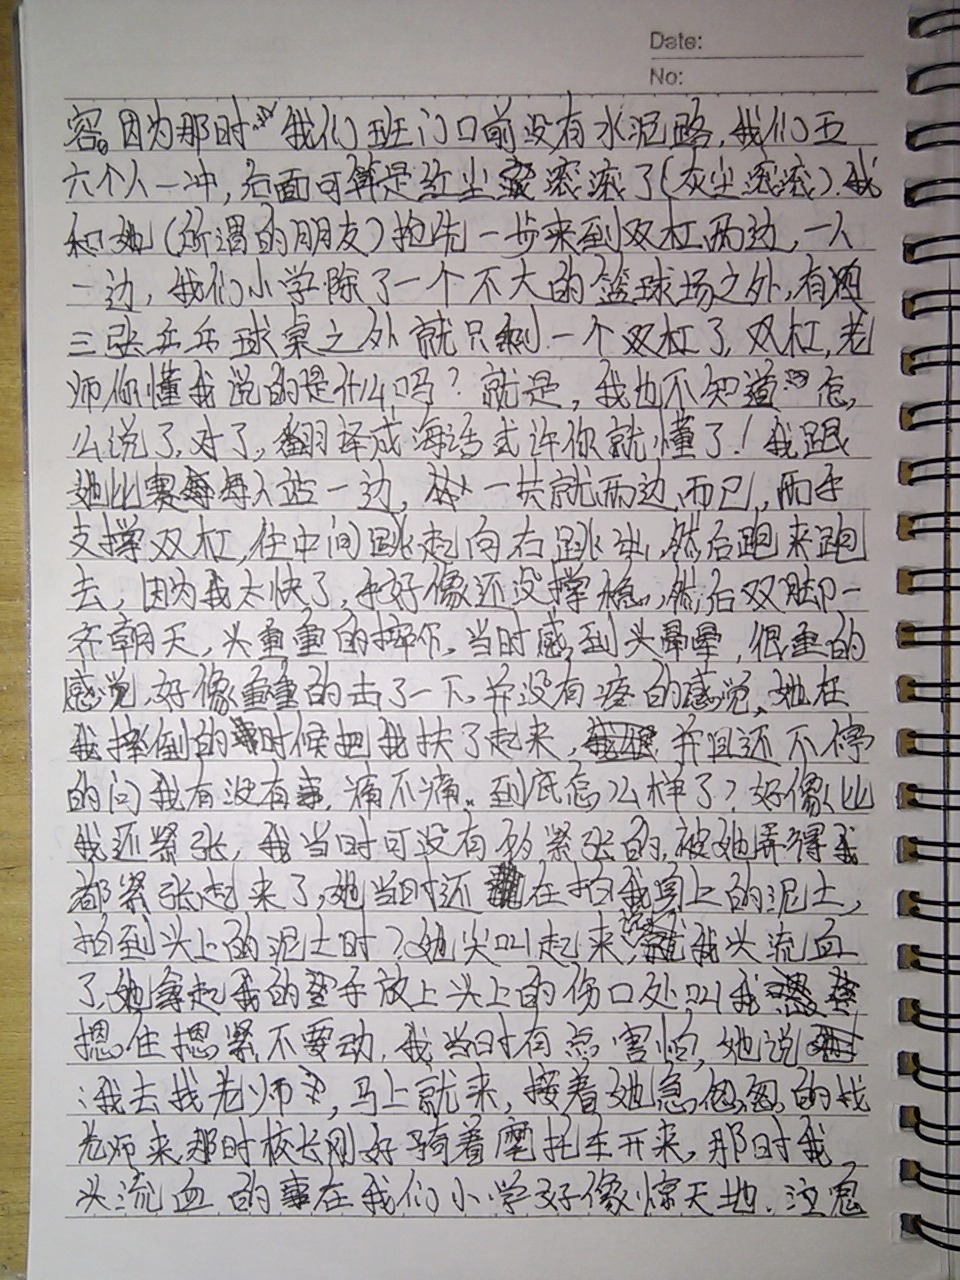 Date:
No:
容。因为那时我们班门口前没有水泥路，我们五
六个人一冲，后面可算是红尘滚滚了(灰尘滚滚)。我
和她(所谓的朋友)抢先一步来到双杠两边，一人
一边，我们小学除了一个不大的篮球场之外，有两
三张乒乓球桌之外就只剩一个双杠了，双杠，老
师你懂我说的是什么吗？就是，我也不知道怎
么说了，对了，翻译成海话或许你就懂了！我跟
她比赛每人站一边，一共就两边而已，两手
支撑双杠，往中间跳起向右跳出，然后跑来跑
去，因为我太快了，手好像还没撑稳，然后双脚一
齐朝天，头重重的摔下，当时感到头晕晕，很重的
感觉，好像重重的击了一下，并没有疼的感觉，她在
我摔倒的时候把我扶了起来，并且还不停
的问我有没有事，痛不痛。到底怎么样了？好像比
我还紧张，我当时可没有紧张的，被她弄得我
都紧张起来了，她当时还在拍我身上的泥土，
拍到头上的泥土时？她尖叫起来，说我头流血
了，她拿起我的手放上头上的伤口处叫我
摁住摁紧不要动，我当时有点害怕，她说
：我去找老师，马上就来，接着她急忽忽的找
老师来，那时校长刚好骑着摩托车开来，那时我
头流血的事在我们小学好像惊天地，泣鬼